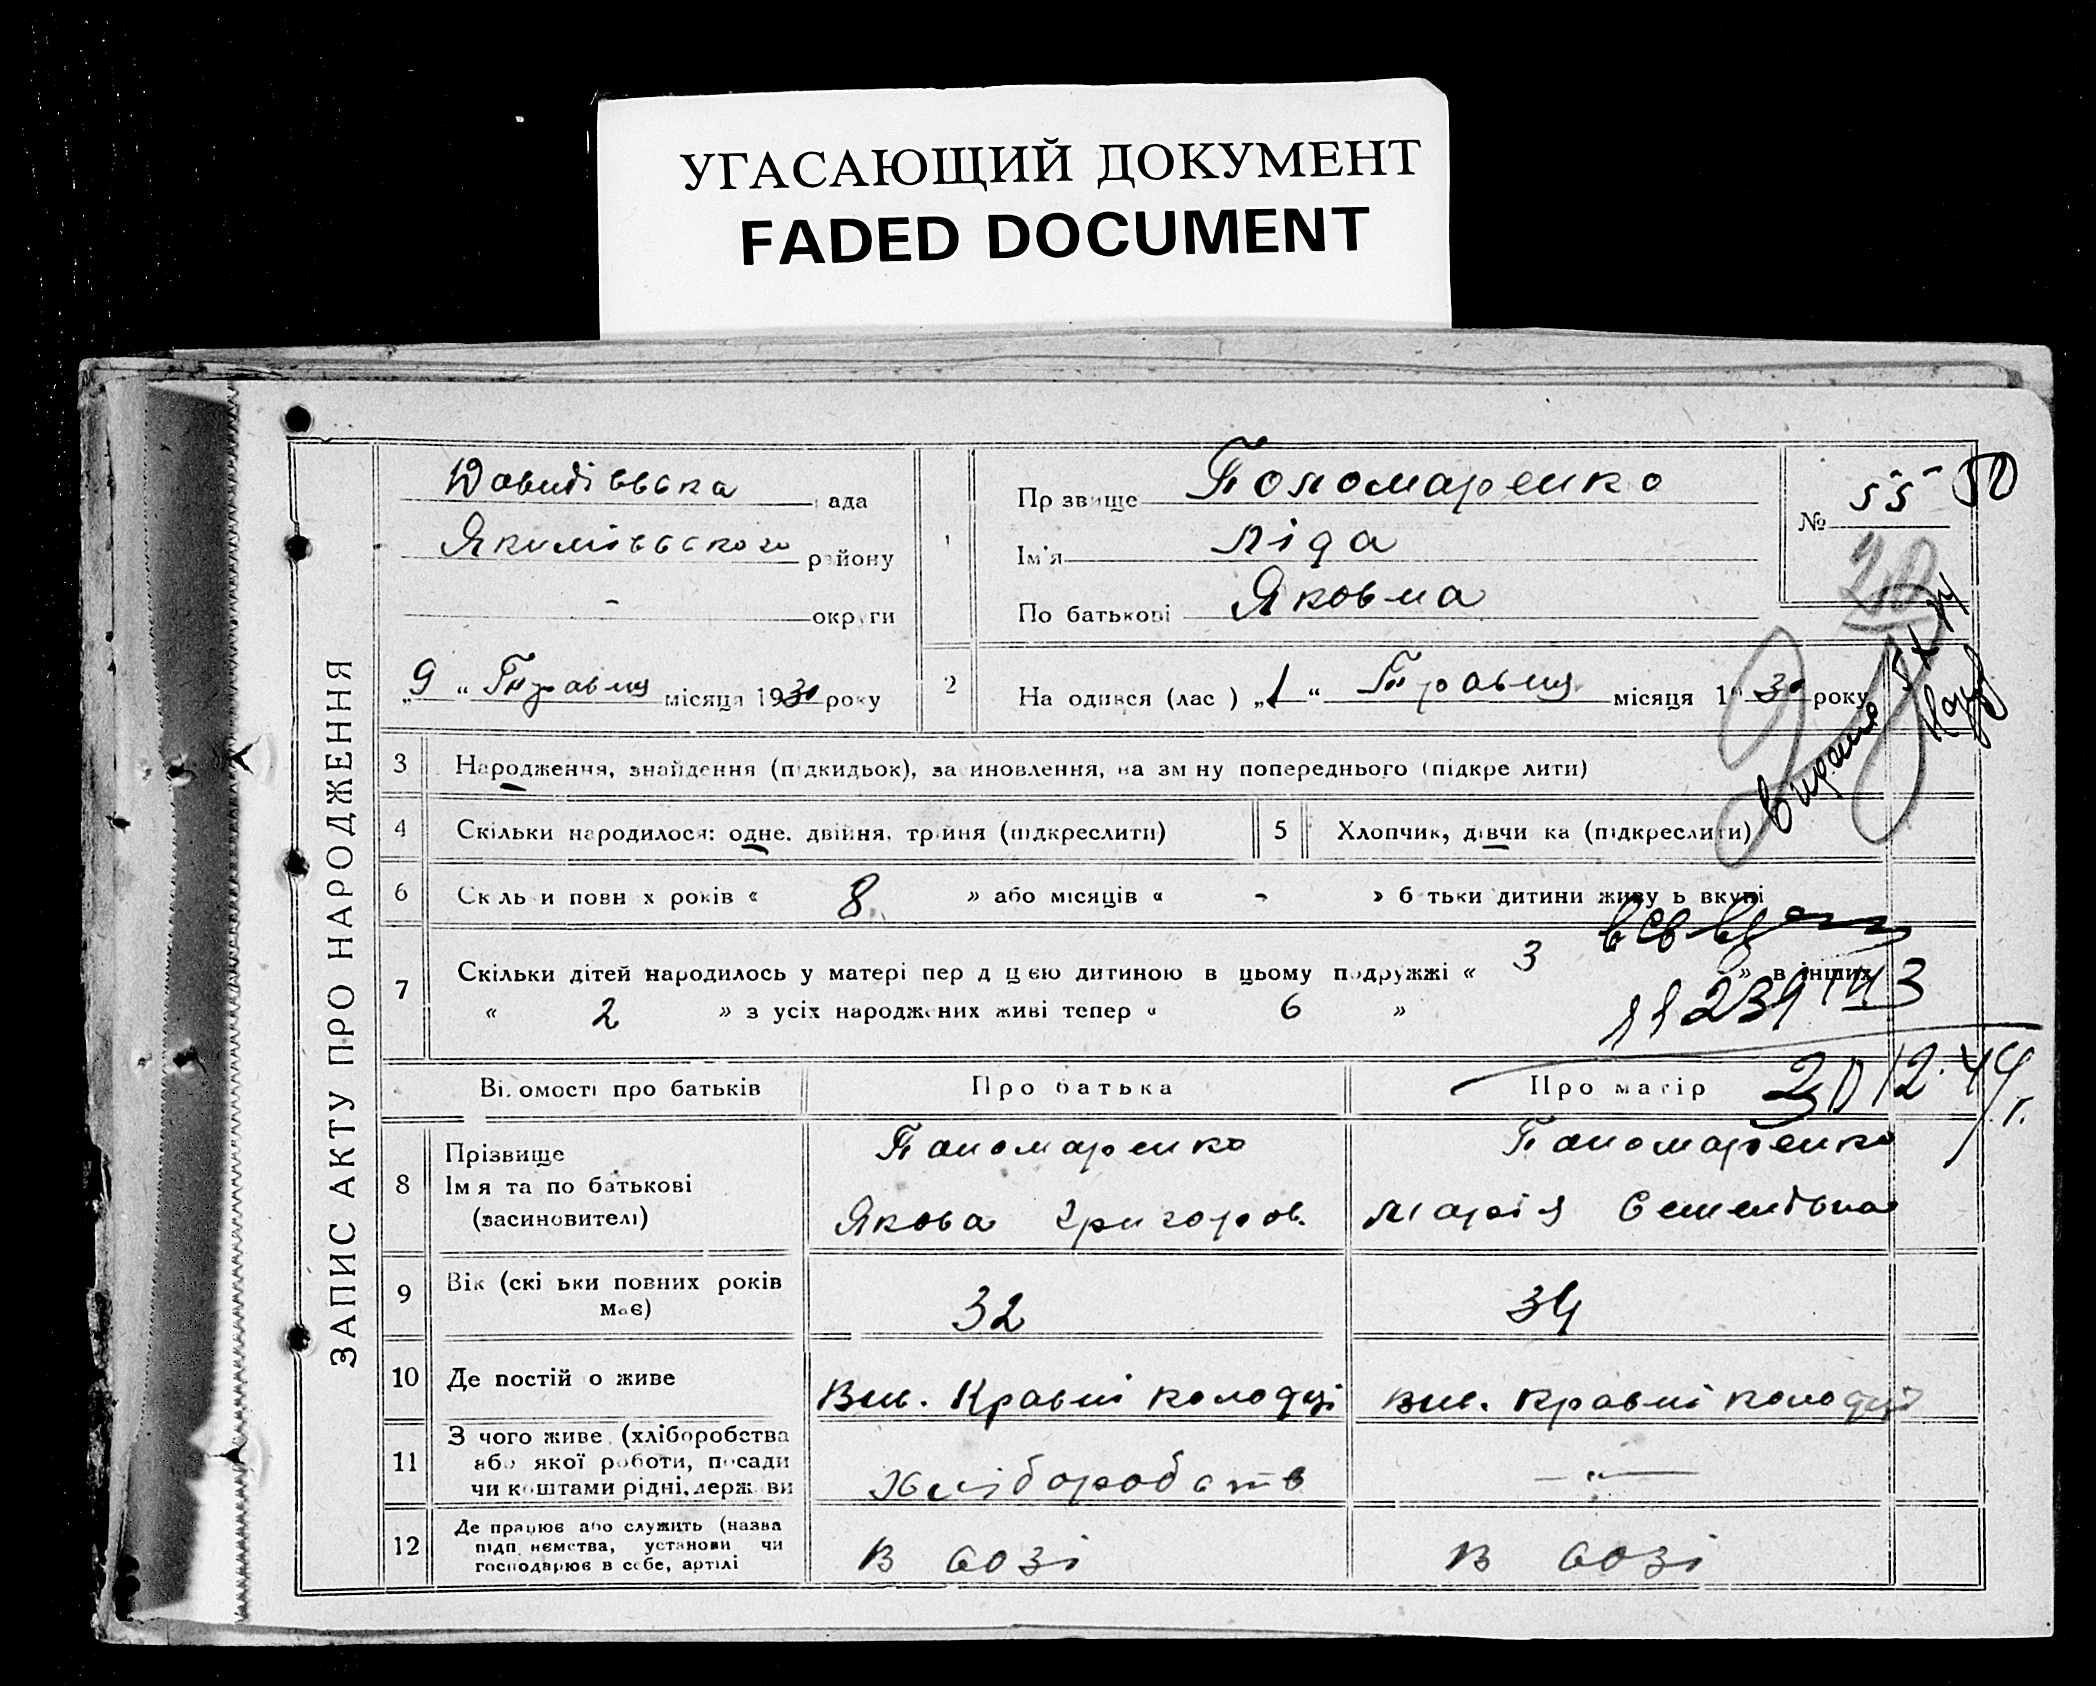 УГАСАЮЩИЙ ДОКУМЕНТ
FADED DOCUMENT
ЗАПИС АКТУ ПРО НАРОДЖЕННЯ
Давидівська ада
Якимівського району
- округи
„ 9 “ Травня місяця 1930 року
1
Пр звище Пономаренко
Ім'я Ліда
По батькові Яковна
№ 55 50
20
2
На одився (лас ) „ 1 “ Травня місяця 1930 року
3 Народження, знайдення (підкидьок), за иновлення, на зм ну попереднього (підкре лити)
4 Скільки народилося: одне, двійня, трійня (підкреслити)
5 Хлопчик, дівчи ка (підкреслити)
6 Скіль и повн х років « 8 » або місяців « - » б тьки дитини живу ь вкупі
7 Скільки дітей народилось у матері пер д цією дитиною в цьому подружжі « 3 » в інших
« 2 » з усіх народжених живі тепер « 6 »
30 12. 44 г.
Ві омості про батьків
Про батька
Про матір
8 Прізвище
Ім я та по батькові
(засиновителі)
Паномаренко
Якова Григоров.
Паномаренко
Марія Семенівна
9 Вік (скі ьки повних років
має)
32
34
10 Де постій о живе
Вис. Кравні колодці
Вис. Кравні колодці
11 З чого живе (хліборобства
або якої роботи, посади
чи коштами рідні, держ ви
Хліборобств
— „ —
12 Де працює або служить (назва
підп ємства, установи чи
господарює в себе, артілі
В созі
В созі